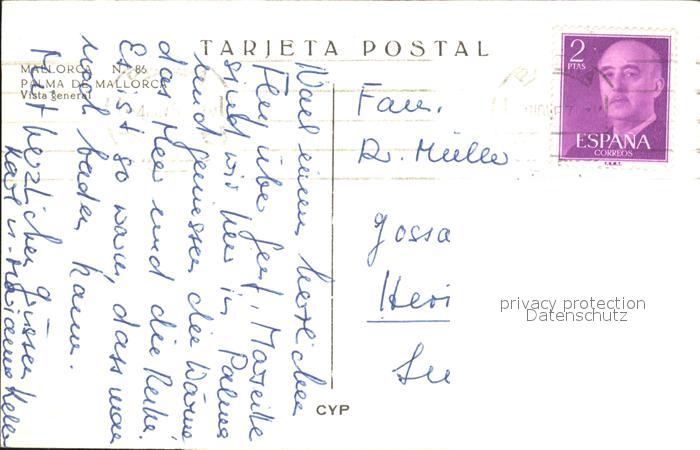 TARJETA POSTAL
MALLORCA N.º 86
PALMA DE MALLORCA
Vista general
Nach einem herrlichen
Flug über Genf, Marseille
sind wir hier in Palma
und geniessen die Wärme
das Meer und die Ruhe.
Es ist so warm, dass man
noch baden kann.
Mit herzlichen Grüssen
Karl u. Marianne
Fam.
R. Müller
Gossa
Heri
2
PTAS
ESPAÑA
CORREOS
F.N.M.T.
privacy protection
Datenschutz
CYP